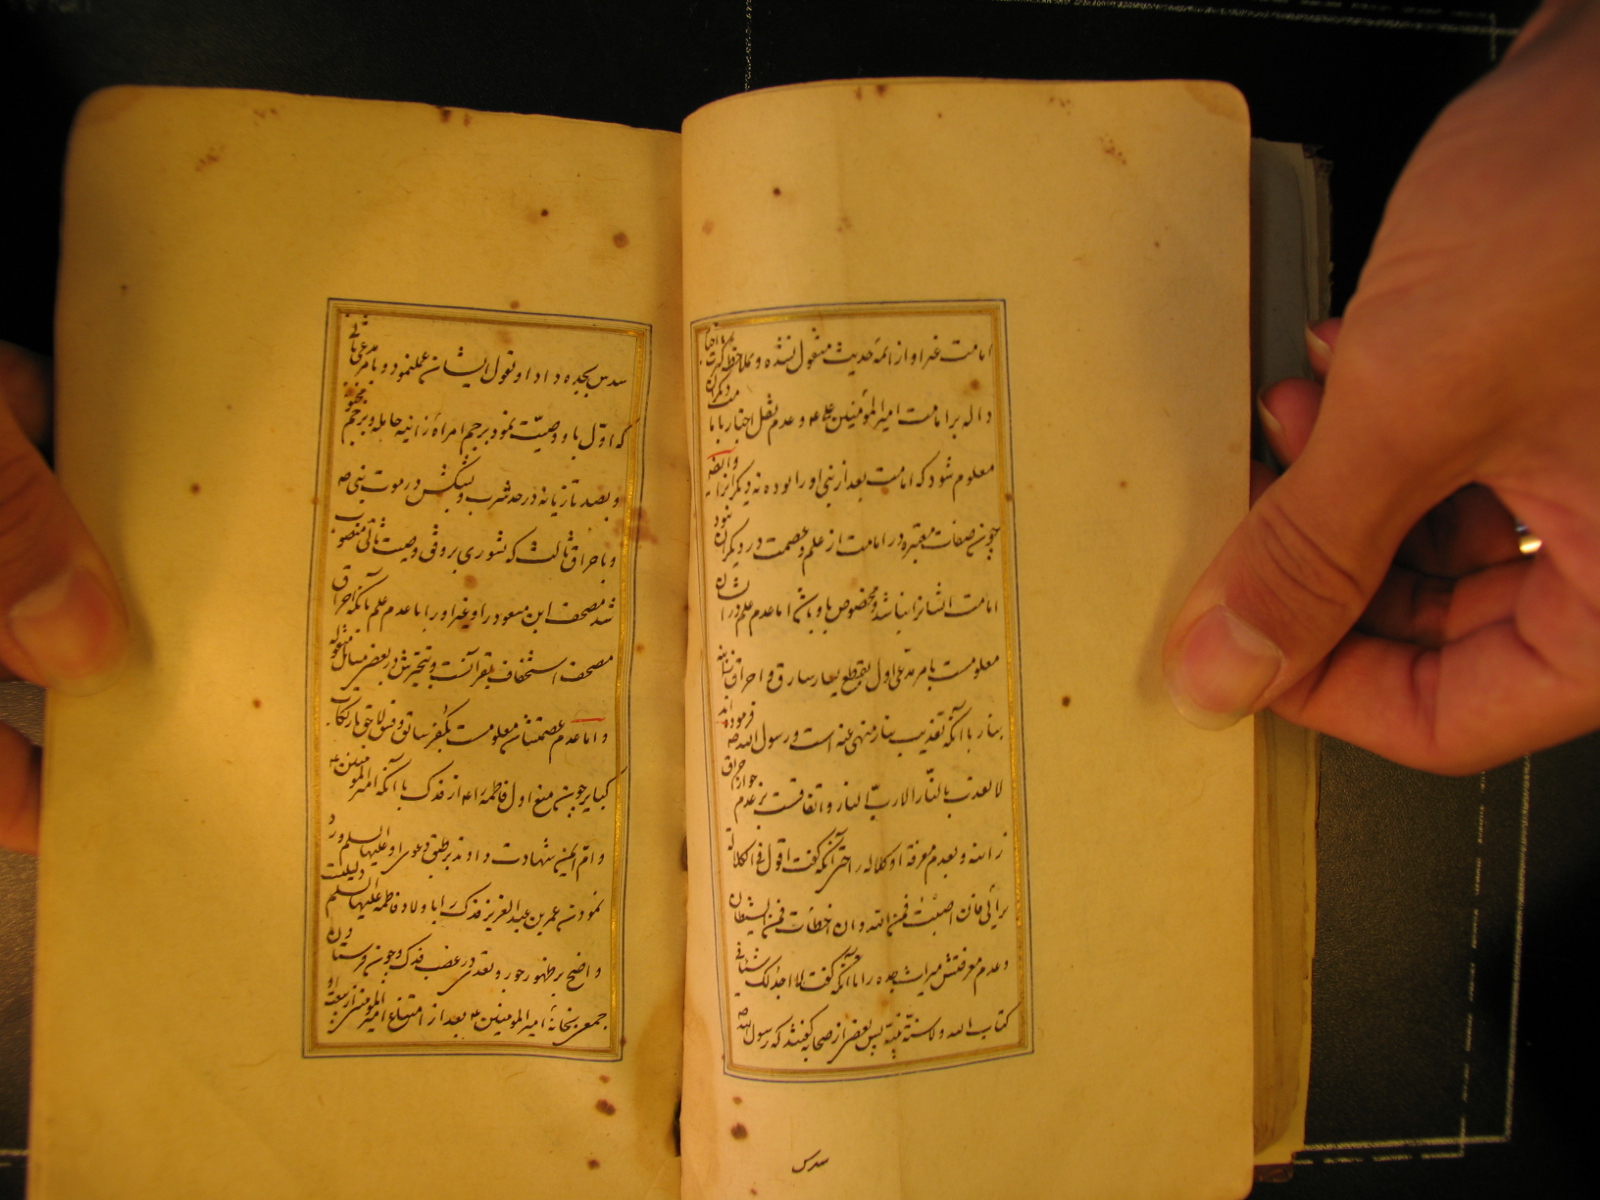 امامت غیر او از ائمه حدیث منقول نشده و بملاحظه کثرت اخبار
داله بر امامت امیر المؤمنین علیه و عدم نقل اخبار با امامت دیگران
معلوم شود که امامت بعد از نبی او را بوده نه دیگرانرا و ایضا
چون صفات معتبره در امامت از علم و عصمت در دیگران نبود
امامت ایشانرا نباشد و مخصوص باو باشد اما عدم علم در ایشان
معلومست بامر مدعی اول بقطع یسار سارق و احراق
بنار با آنکه تعذیب بنار منهی عنه است و رسول الله ص فرموده اند
لا یعذب بالنار الا رب النار و اتفاقست بر عدم جواز احراق
زانه و بعدم معرفة او کلاله را حتی آنکه گفت اقول فی الکلالة
برائی فان اصبت فمن الله و ان اخطأت فمن الشیطان
و عدم معرفتش میراث جده را با آنکه گفت لا اجد لک شیئا فی
کتاب الله و لا سنة نبیه پس بعضی از صحابه گفتند که رسول الله ص
سدس
سدس بجده داد او بقول ایشان عمل نمود و بامر مدعی ثانی
که اول باو وصیت نمود برجم امرأهٔ زانیه حامله و برجم مجنونه
و بصد تازیانه در حد شرب و بشکش در موت نبی ص
و باحراق ثالث که بشوری بر وفق وصیت ثانی منصوب
شد مصحف ابن مسعود را و غیر او را با عدم علم بآنکه احراق
مصحف استخفاف بقرآنست و تبحیرش در بعضی مسائل منقوله
و اما عدم عصمتشان معلومست بکفر سابق و فسق لاحق بارتکاب
کبایر چون منع اول فاطمه را ع از فدک با آنکه امیر المؤمنین ع
و ام ایمن شهادت دادند بر طبق دعوی او علیها السلم و رد
نمودن عمر بن عبد العزیز فدک را باولاد فاطمه علیها السلم دلیلیست
واضح بر ظهور جور و تعدی در غصب فدک و چون فرستادن
جمعی بخانهٔ امیر المومنین ع بعد از امتناع امیر المومنین از بیعت او